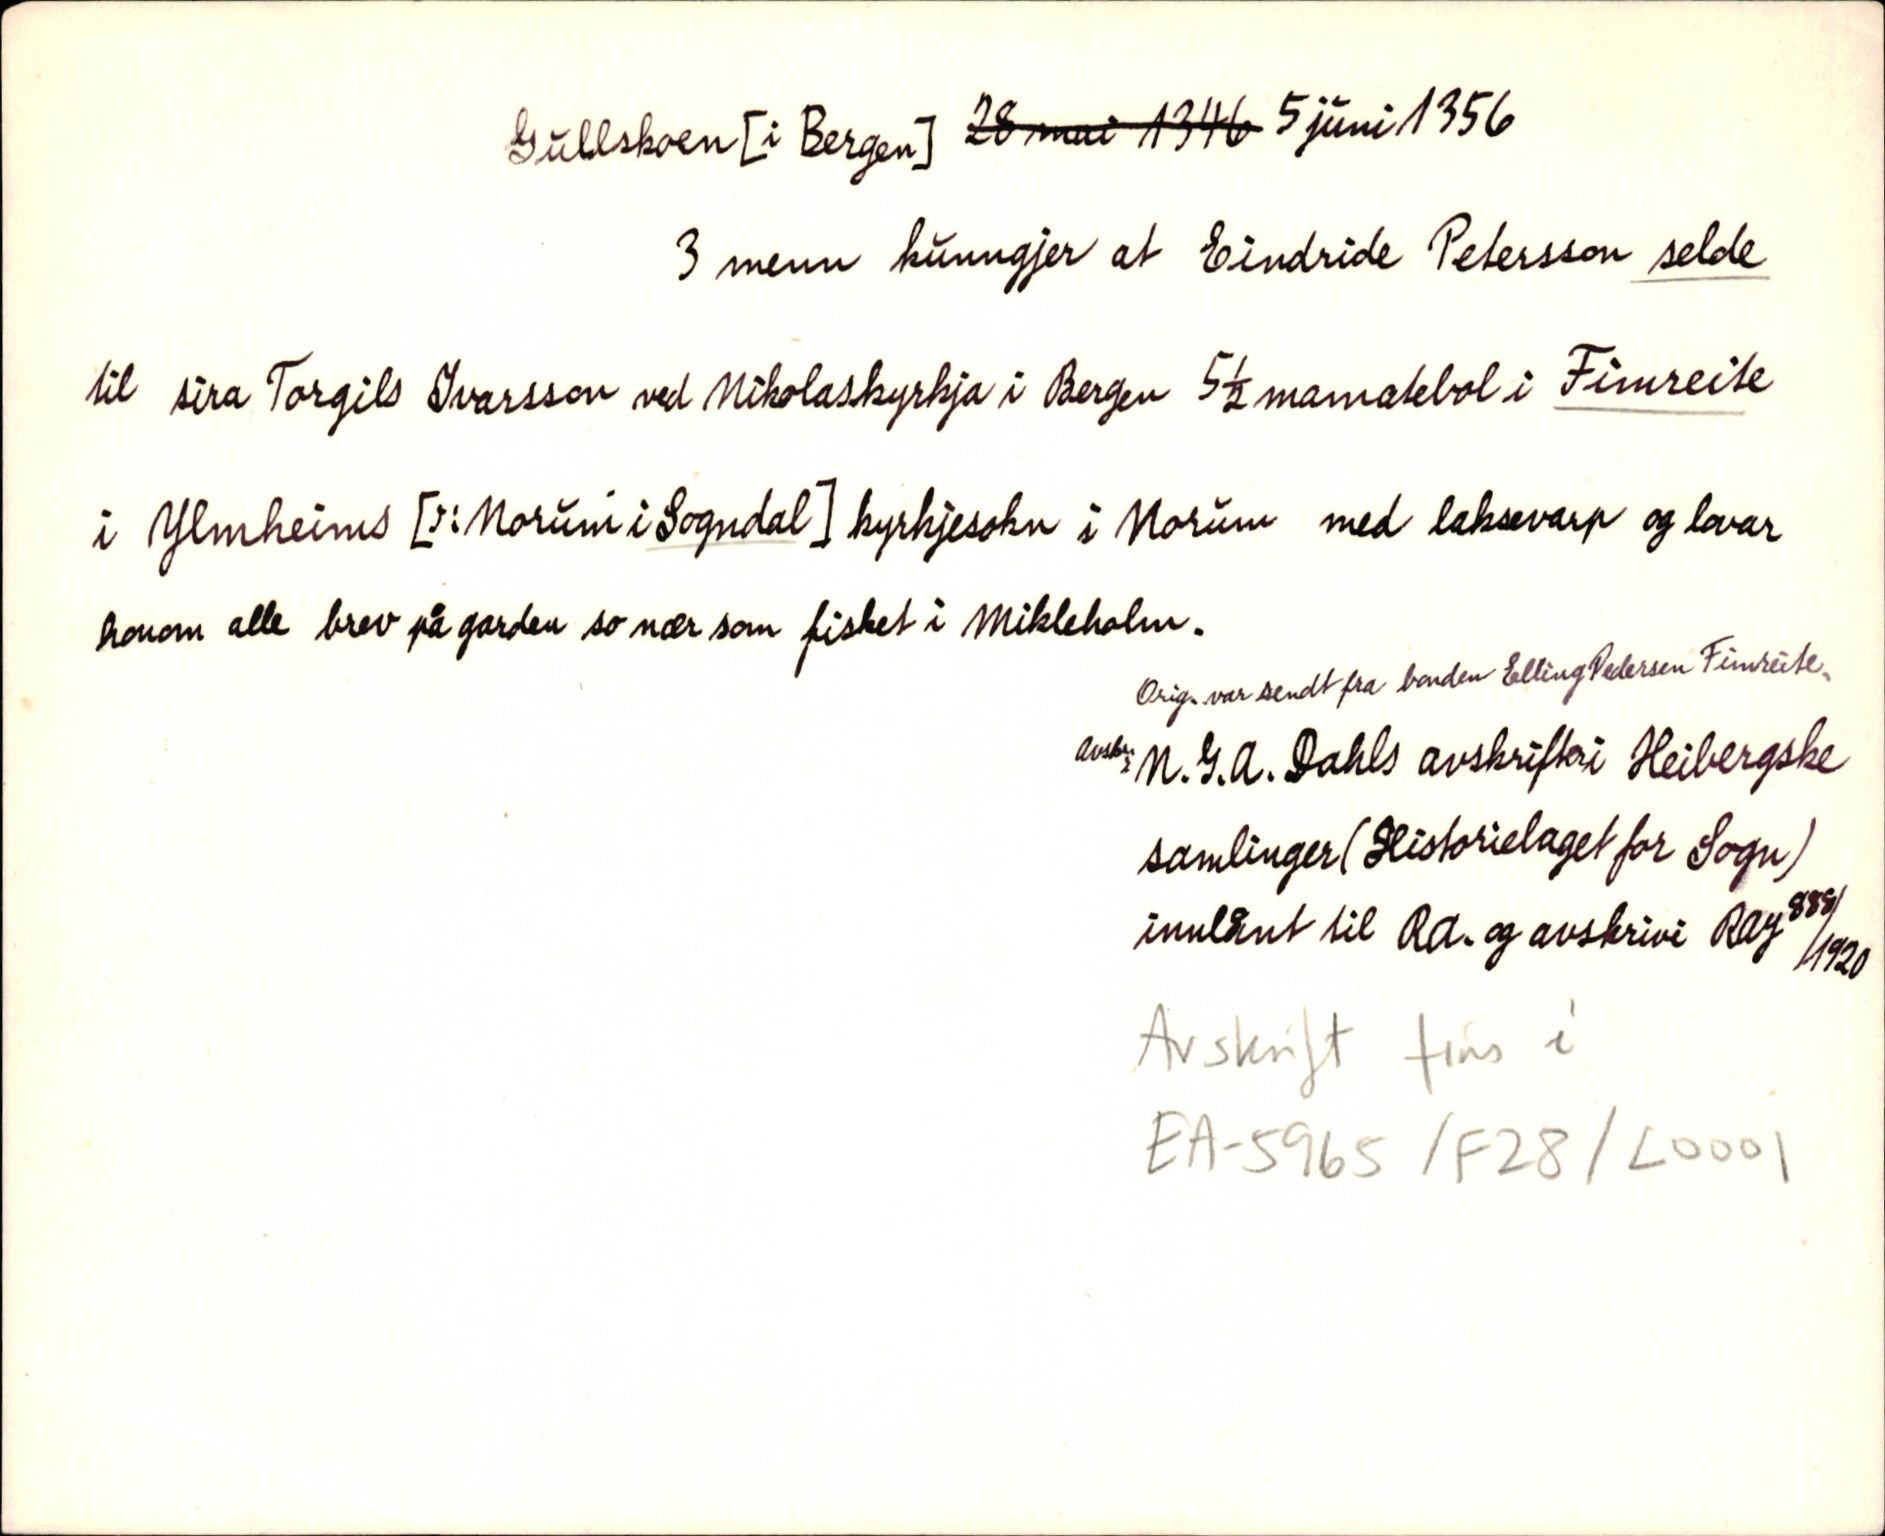 Gullskoen [i Bergen] 28 mai 1346 5 juni 1356
3 menn kunngjer at Eindride Petersson selde
til sira Torgils Ivarsson ved Nikolaskyrkja i Bergen 5½ mamatebol i Fimreite
i Ylmheims [ɔ: Norum i Sogndal] kyrkjesokn i Norum med laksevarp og lovar
honom alle brev på garden so nær som fisket i Mikleholm.
Orig. var sendt fra bonden Elling Pedersen Fimreite.
Avskr. i N. G. A. Dahls avskrifter i Heibergske
samlinger (Historielaget for Sogn)
innlånt til RA. og avskrivi RAy 888/1920
Avskrift fins i
EA-5965 /F28/ L0001